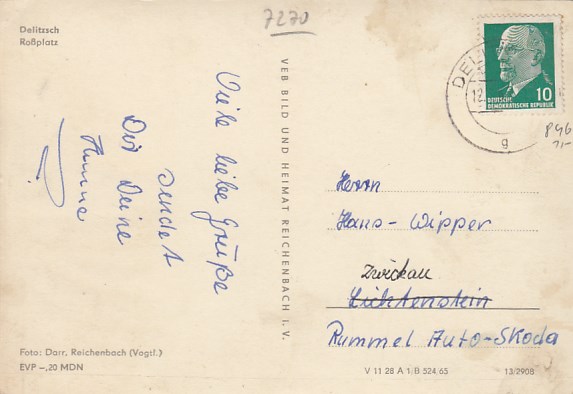 7270
Delitzsch
Roßplatz
Viele liebe Grüße
sendet
Dir Deine
VEB BILD UND HEIMAT REICHENBACH I. V.
DEUTSCHE
DEMOKRATISCHE REPUBLIK
10
g
896
Herrn
Hans-Wipper
Zwickau
Lichtenstein
Rummel Auto-Skoda
Foto: Darr, Reichenbach (Vogtl.)
EVP -,20 MDN
V 11 28 A 1 B 524/65
13/2908